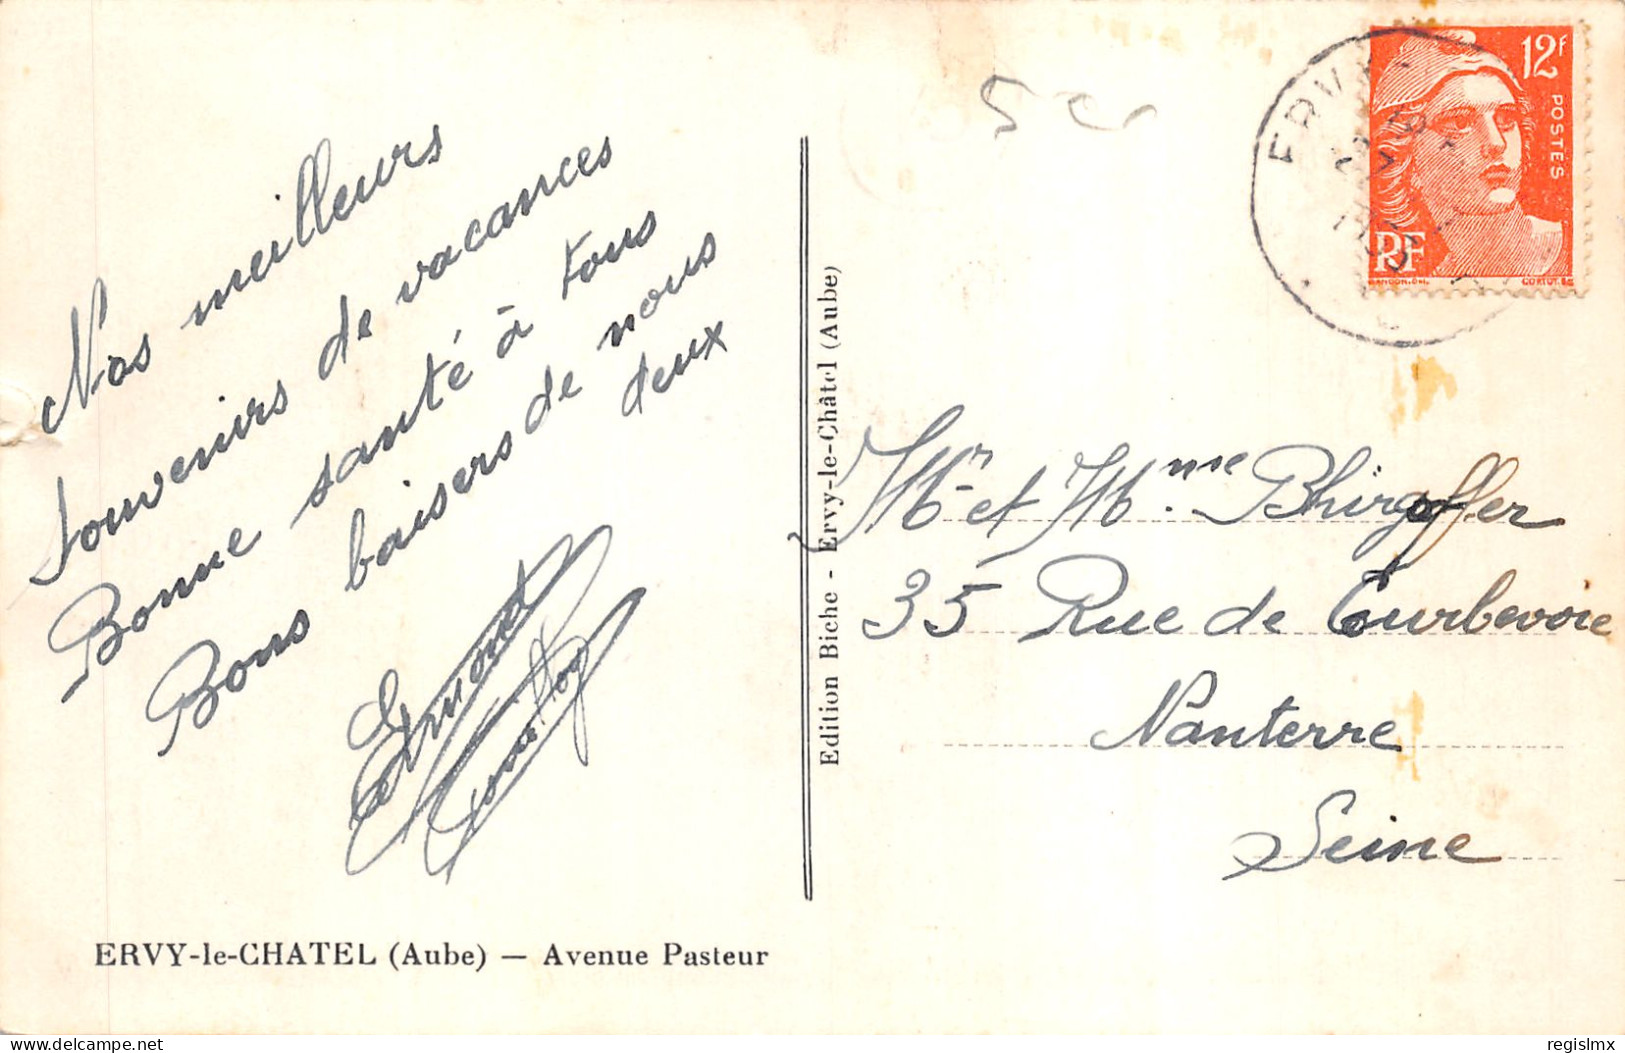 Nos meilleurs
souvenirs de vacances
Bonne santé à tous
Bons baisers de nous
deux
Edmond
ERVY-le-CHATEL (Aube) — Avenue Pasteur
Edition Biche - Ervy-le-Châtel (Aube)
5
ERVY
12f
POSTES
RF
GANDON.DEL.
CORTOT.SC
Mr et Mme Bhirgoffer
35 Rue de Courbevoie
Nanterre
Seine
delcampe.net
regislmx